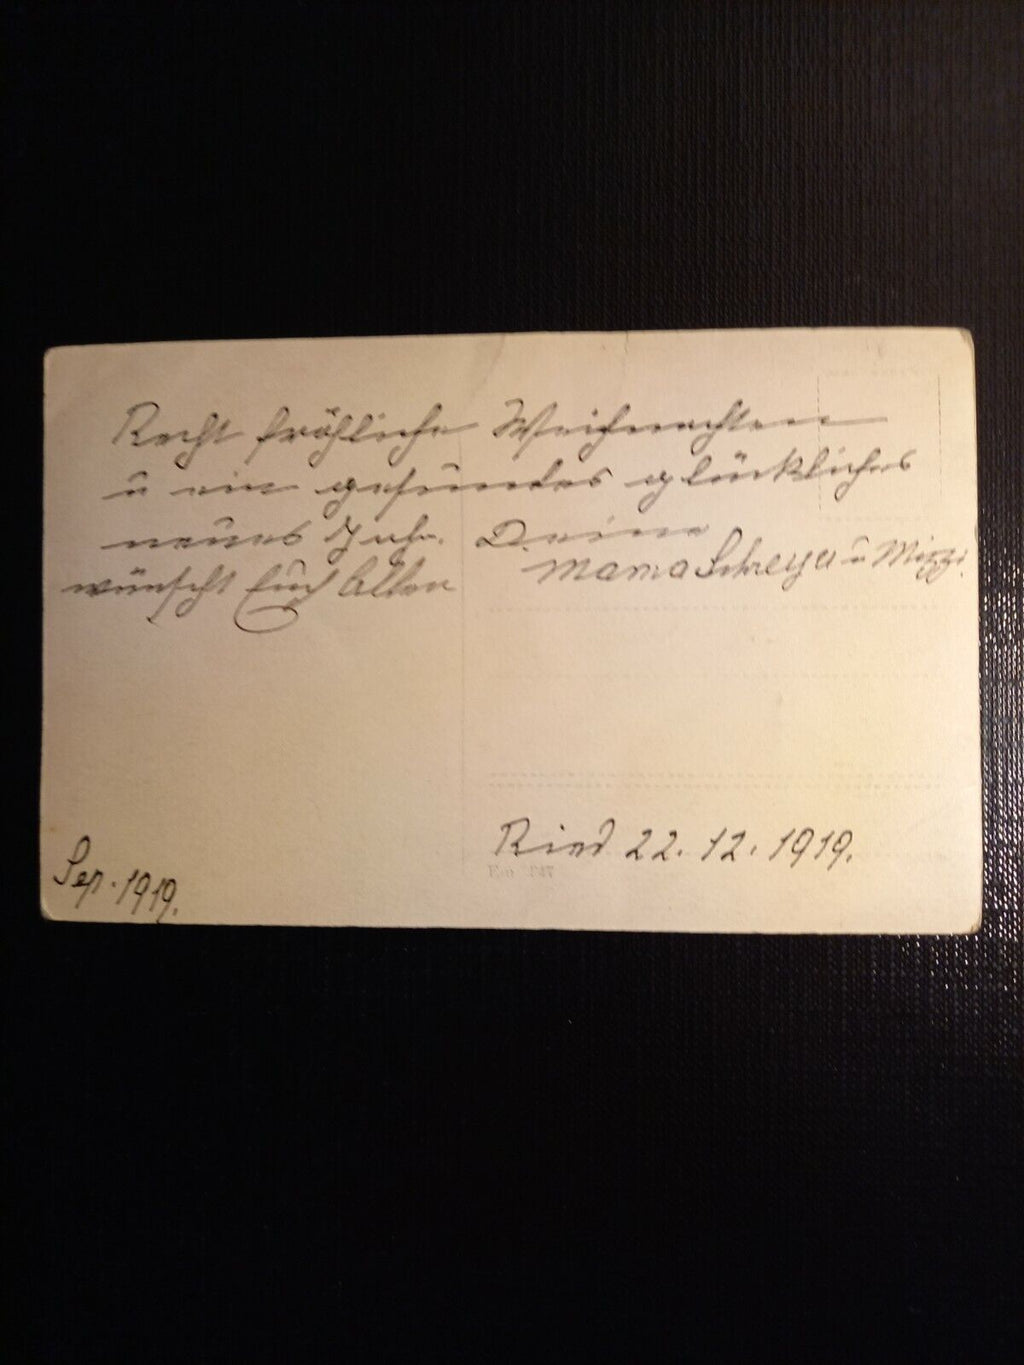 Recht fröhliche Weihnachten
u ein gesundes glückliches
neues Jahr. Deine
wünscht Euch Allen
Mama u Mizzi.
Ried 22.12.1919.
Sep. 1919.